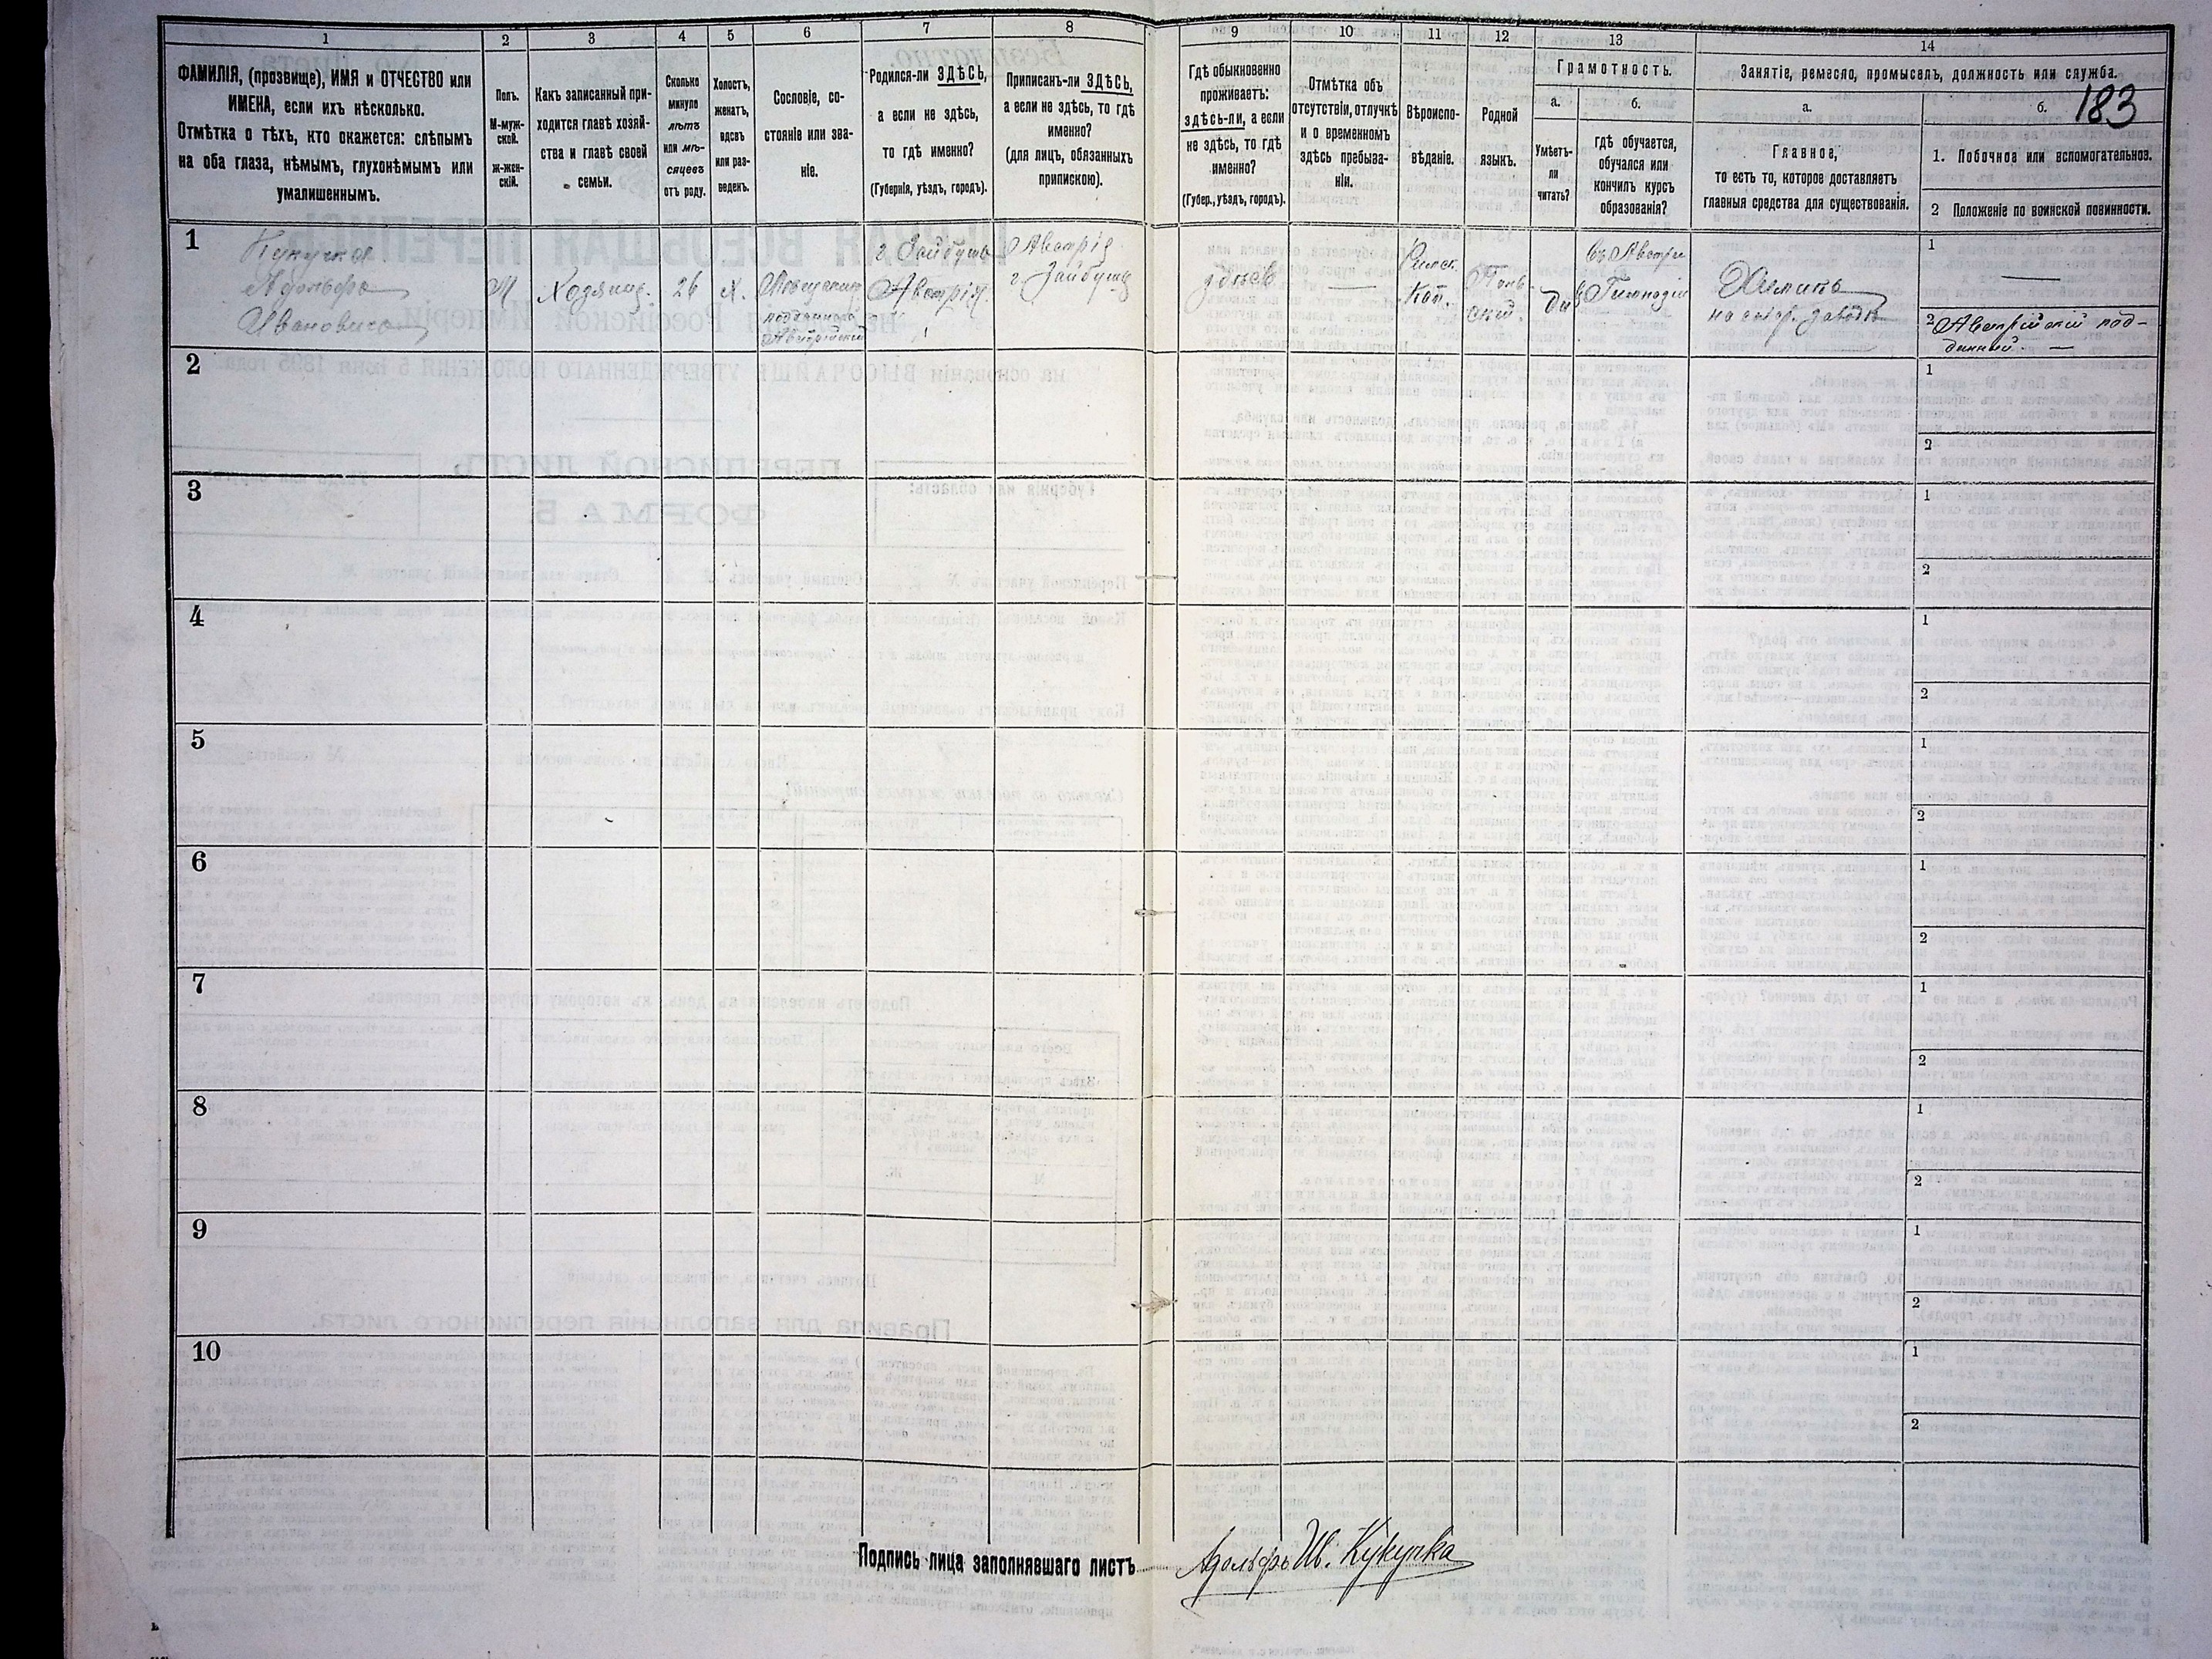 1
2
3
4
5
6
7
8
9
10
11
12
13
14
ФАМИЛІЯ, (прозвище), ИМЯ и ОТЧЕСТВО или
ИМЕНА, если ихъ нѣсколько.
Отмѣтка о тѣхъ, кто окажется: слѣпымъ
на оба глаза, нѣмымъ, глухонѣмымъ или
умалишеннымъ.
Полъ.
М-муж-
ской.
ж-жен-
скій.
Какъ записанный при-
ходится главѣ хозяй-
ства и главѣ своей
семьи.
Сколько
минуло
лѣтъ
или мѣ-
сяцевъ
отъ роду.
Холостъ,
женатъ,
вдовъ
или раз-
веденъ.
Сословіе, со-
стояніе или зва-
ніе.
Родился-ли ЗДѢСЬ,
а если не здѣсь,
то гдѣ именно?
(Губернія, уѣздъ, городъ).
Приписанъ-ли ЗДѢСЬ,
а если не здѣсь, то гдѣ
именно?
(для лицъ, обязанныхъ
припискою).
Гдѣ обыкновенно
проживаетъ:
здѣсь-ли, а если
не здѣсь, то гдѣ
именно?
(Губер., уѣздъ, городъ).
Отмѣтка объ
отсутствіи, отлучкѣ
и о временномъ
здѣсь пребыва-
ніи.
Вѣроиспо-
вѣданіе.
Родной
языкъ.
Грамотность.
а.
Умѣетъ-
ли
читать?
б.
Гдѣ обучается,
обучался или
кончилъ курсъ
образованія?
Занятіе, ремесло, промыселъ, должность или служба.
а.
Главное,
то есть то, которое доставляетъ
главныя средства для существованія.
б.
183
1. Побочное или вспомогательное.
2 Положеніе по воинской повинности.
1
Кукучка
Адольфъ
Ивановичъ
М
Хозяинъ.
26
Х.
г. Зайбушъ
Австрія.
Австрія
г. Зайбушъ
здѣсь
—
Римск.
Кат.
Поль
скій.
да
Въ Австріи
Гимназіи
Химикъ
на сахар. заводѣ
1
—
2 Австрійскій под-
данный. —
2
1
2
3
1
2
4
1
2
5
1
2
6
1
2
7
1
2
8
1
2
9
1
2
10
1
2
Подпись лица заполнявшаго листъ
Адольфъ Ив. Кукучка